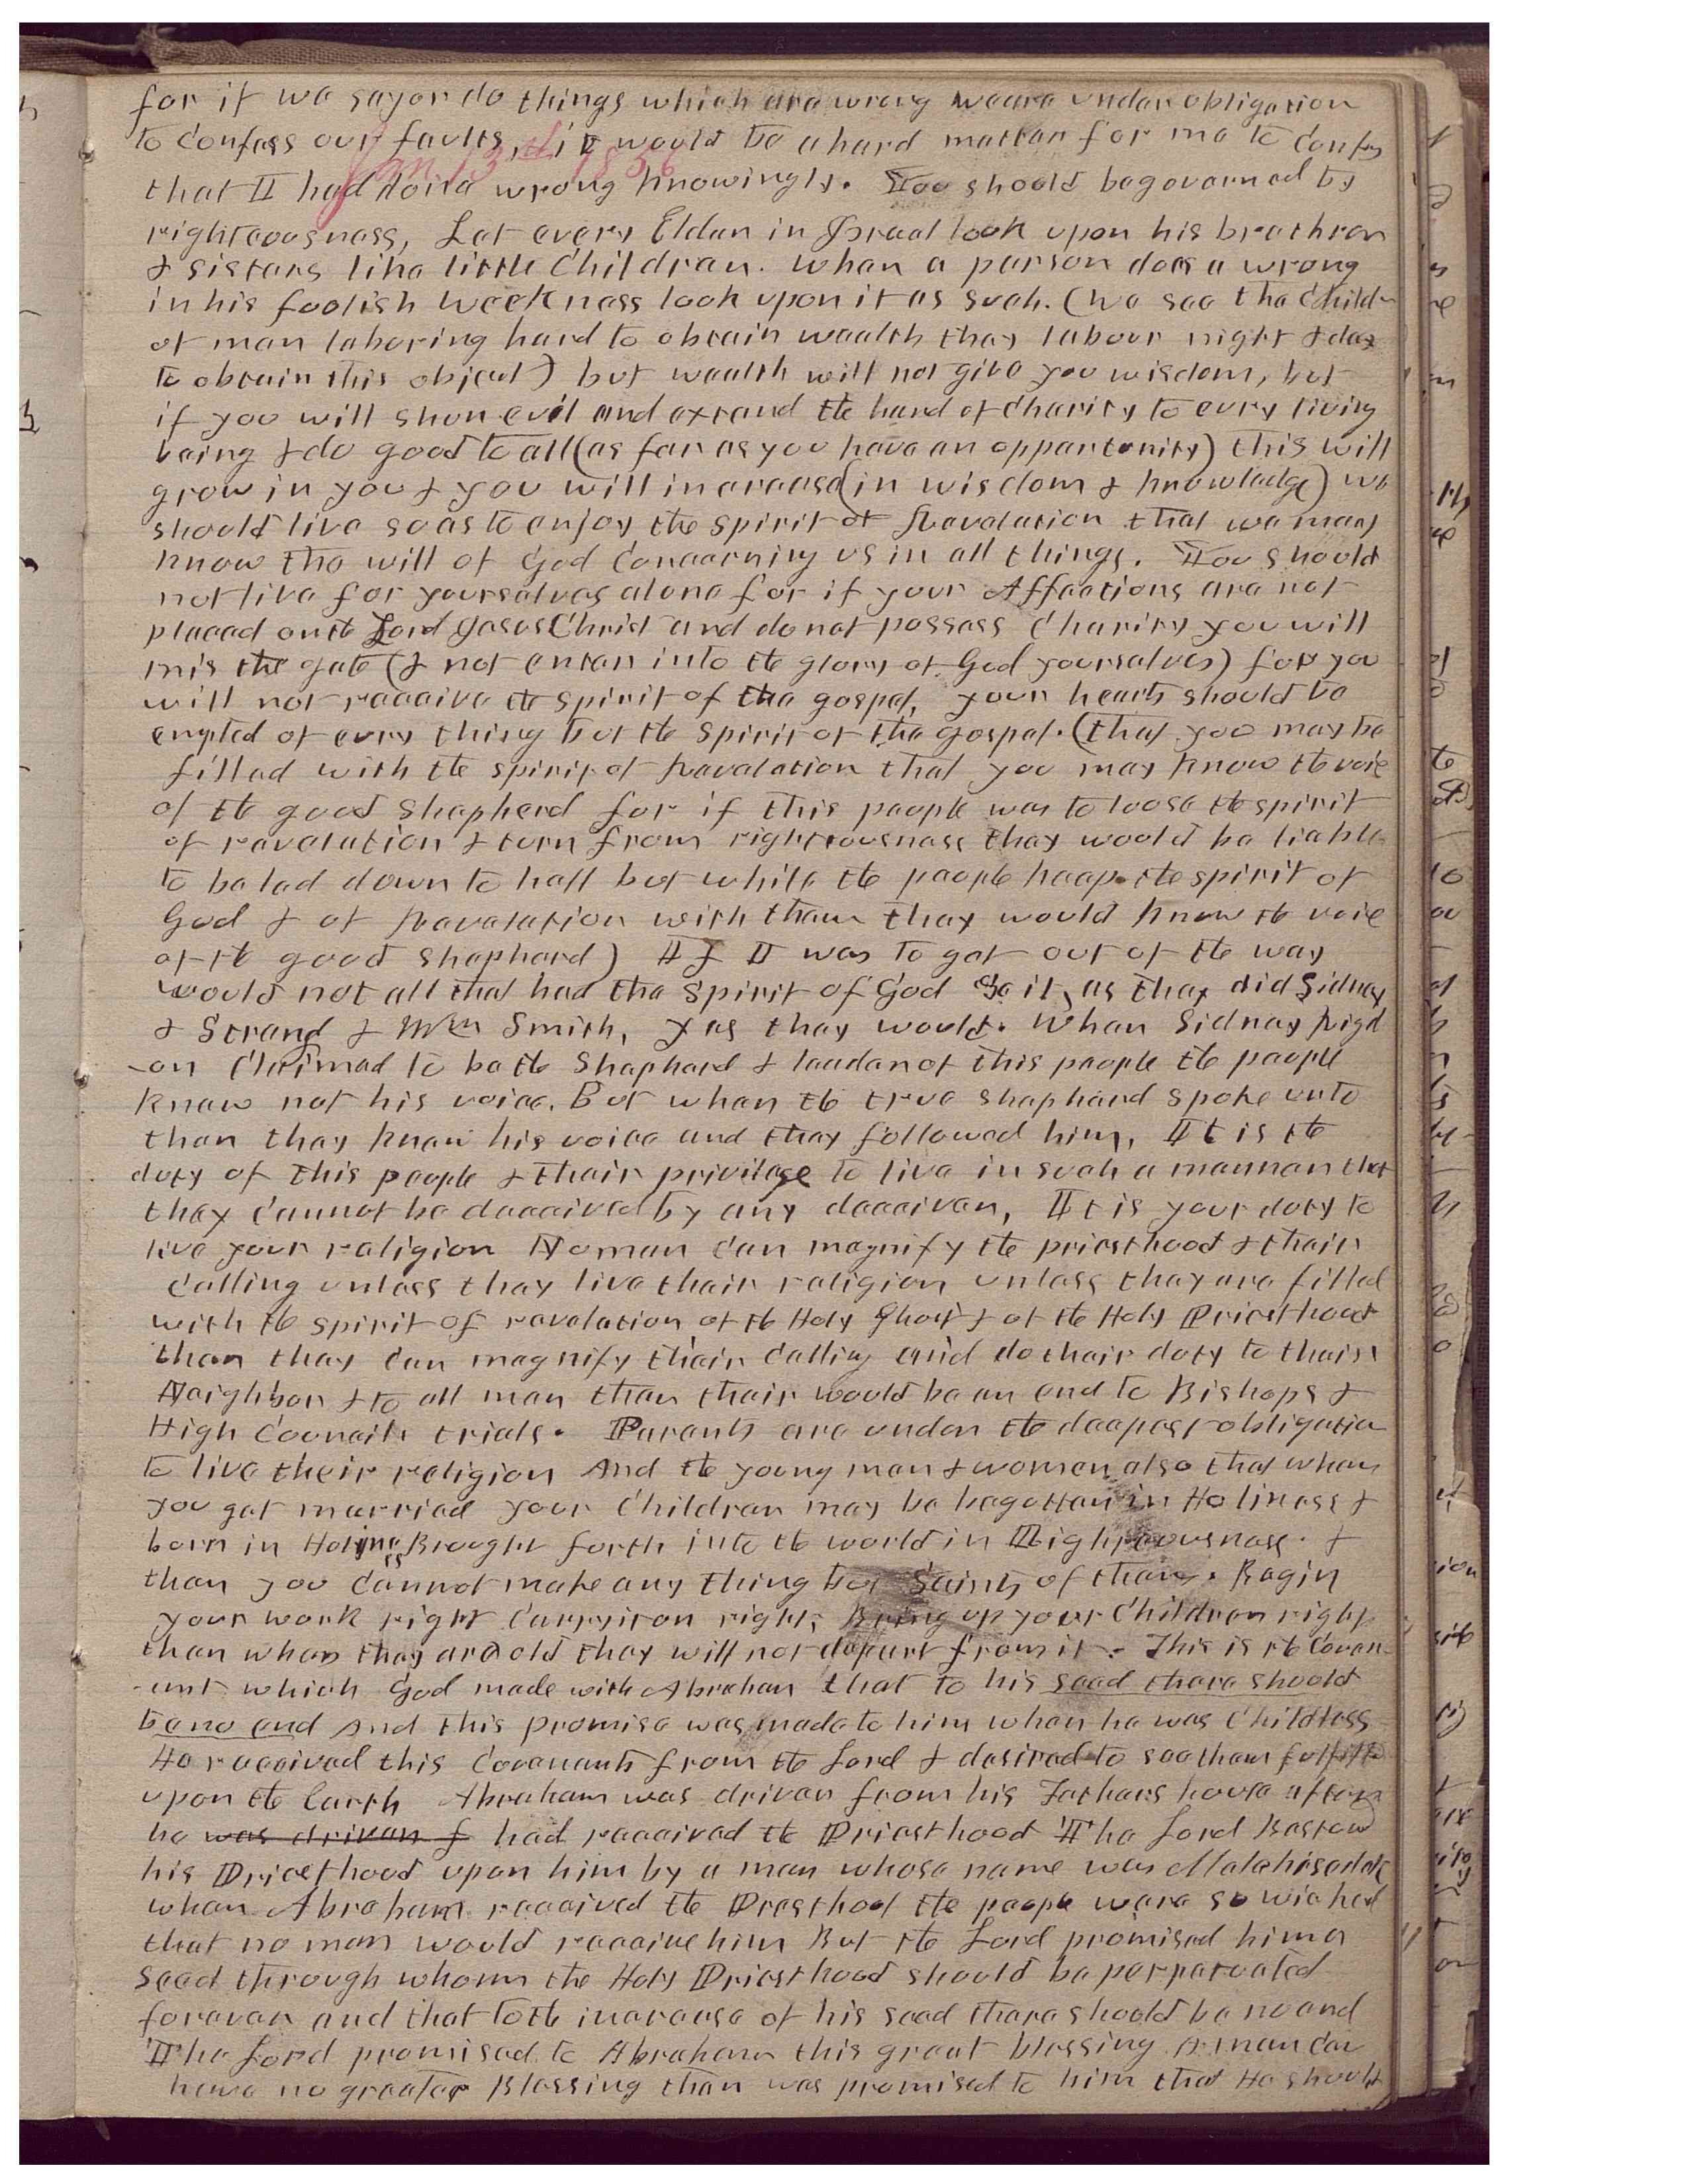 for if we say or do things which are wrong we are under obligation
to confess our faults, it would be a hard matter for me to confes
Jan. 13th 1856
that I had done wrong knowingly. You should be governed by
righteousness, Let every Elder in Israel look upon his brethren
& sisters like little children. when a person does a wrong
in his foolish weekness look upon it as such. (we see the child-
of men laboring hard to obtain wealth they labour night & day
to obtain this object) but wealth will not give you wisdom, but
if you will shun evil and extend the hand of charity to evry living
being & do good to all (as far as you have an oppertunity) this will
grow in you & you will increase (in wisdom & knowledge) we
should live so as to enjoy the spirit of Revelation that we may
know the will of God concerning us in all things. You should
not live for yourselves alone for if your Affections are not
placed on the Lord Jesus Christ and do not possess charity you will
mis the gate (& not enter into the glory of God yourselves) for you
will not receive the spirit of the gospel, your hearts should be
emptied of every thing but the spirit of the gospel. (that you may be
filled with the spirit of Revelation that you may know the voice
of the good shepherd for if this people was to loose the spirit
of revelation & turn from righteousness they would be liable
to be led down to hell but while the people keep the spirit of
God & of Revelation with them they would know the voice
of the good shepherd) If I was to get out of the way
would not all that had the spirit of God See it, as they did Sidney
& Strang & Wm Smith, yes they would. When Sidney Rigd
-on Claimed to be the Shepherd & leader of this people the people
knew not his voice. But when the true shepherd spoke unto
then they knew his voice and they followed him, It is the
duty of this people & their privilege to live in such a manner that
they cannot be deceived by any deceiver, It is your duty to
live your religion No man can magnify the priesthood & their
calling unless they live their religion unless they are filled
with the spirit of revelation of the Holy Ghost & of the Holy Priesthood
then they can magnify their calling and do their duty to their
Neighbor & to all men then their would be an end to Bishops &
High Councils trials. Parents are under the deepest obligation
to live their religion And the young men & women also that when
you get married your children may be begotten in Holiness &
born in Holiness Brought forth into the world in Righteousness. &
then you cannot make any thing but Saints of them. Begin
your work right carry it on right, Bring up your Children right
then when they are old they will not depart from it. This is the Coven-
-ant which God made with Abraham that to his seed there should
be no end And this promise was made to him when he was Childless
He received this Covenants from the Lord & desired to see them fulfilld
upon the Earth Abraham was driven from his Fathers house after
he was driven f had received the Priesthood The Lord Bestow
his Priesthood upon him by a man whose name was Melchisedek
when Abraham received the Presthood the people were so wicked
that no man would receive him But the Lord promised him a
seed through whom the Holy Priesthood should be perpetuated
forever and that to the increase of his seed there should be no end
The Lord promised to Abraham this great blessing A man can
have no greater Blessing than was promised to him that He should